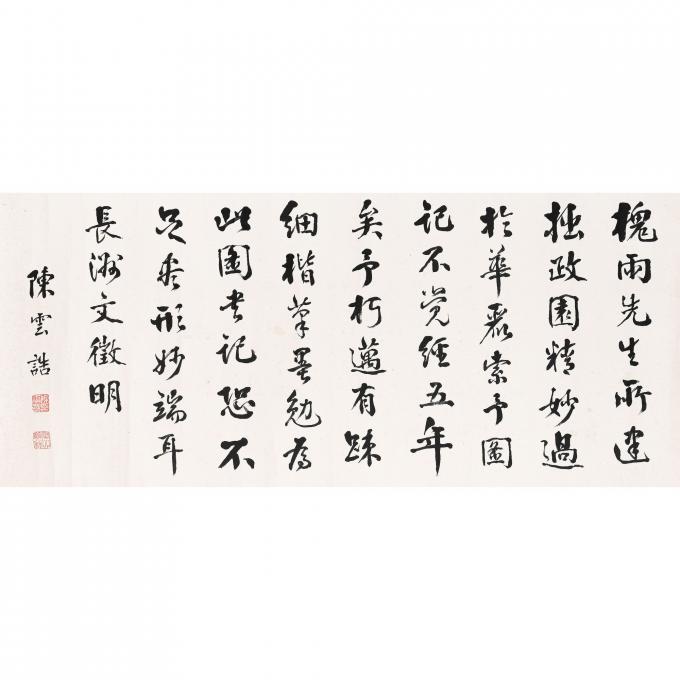 槐雨先生所建
拙政園精妙過
於華麗索予圖
記不覚經五年
矣予朽邁有疎
細楷筆墨勉為
此圖書記恐不
足盡形妙端耳
長洲文徵明
陳雲誥